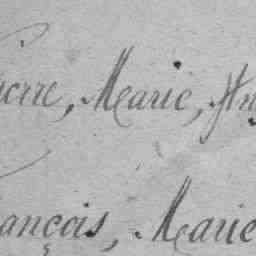 Pierre, Marie, An
François, Marie